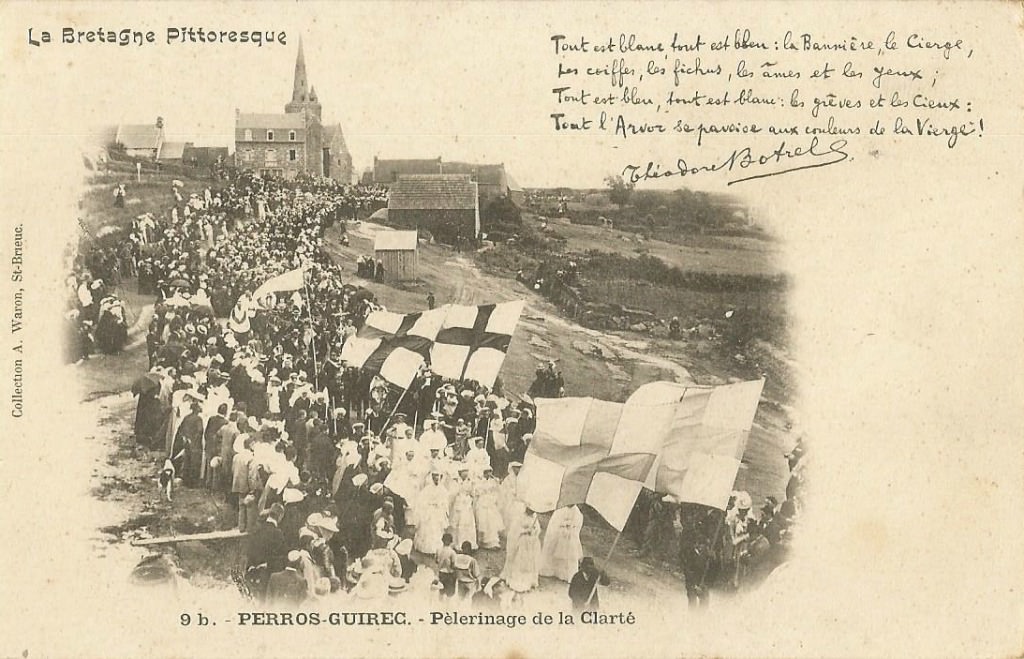 La Bretagne Pittoresque
Tout est blanc, tout est bleu : la Bannière, le Cierge,
Les coiffes, les fichus, les âmes et les yeux ;
Tout est bleu, tout est blanc : les grèves et les Cieux :
Tout l'Arvor se pavoise aux couleurs de la Vierge !
Théodore Botrel
Collection A. Waron, St-Brieuc.
9 b. - PERROS-GUIREC. - Pèlerinage de la Clarté